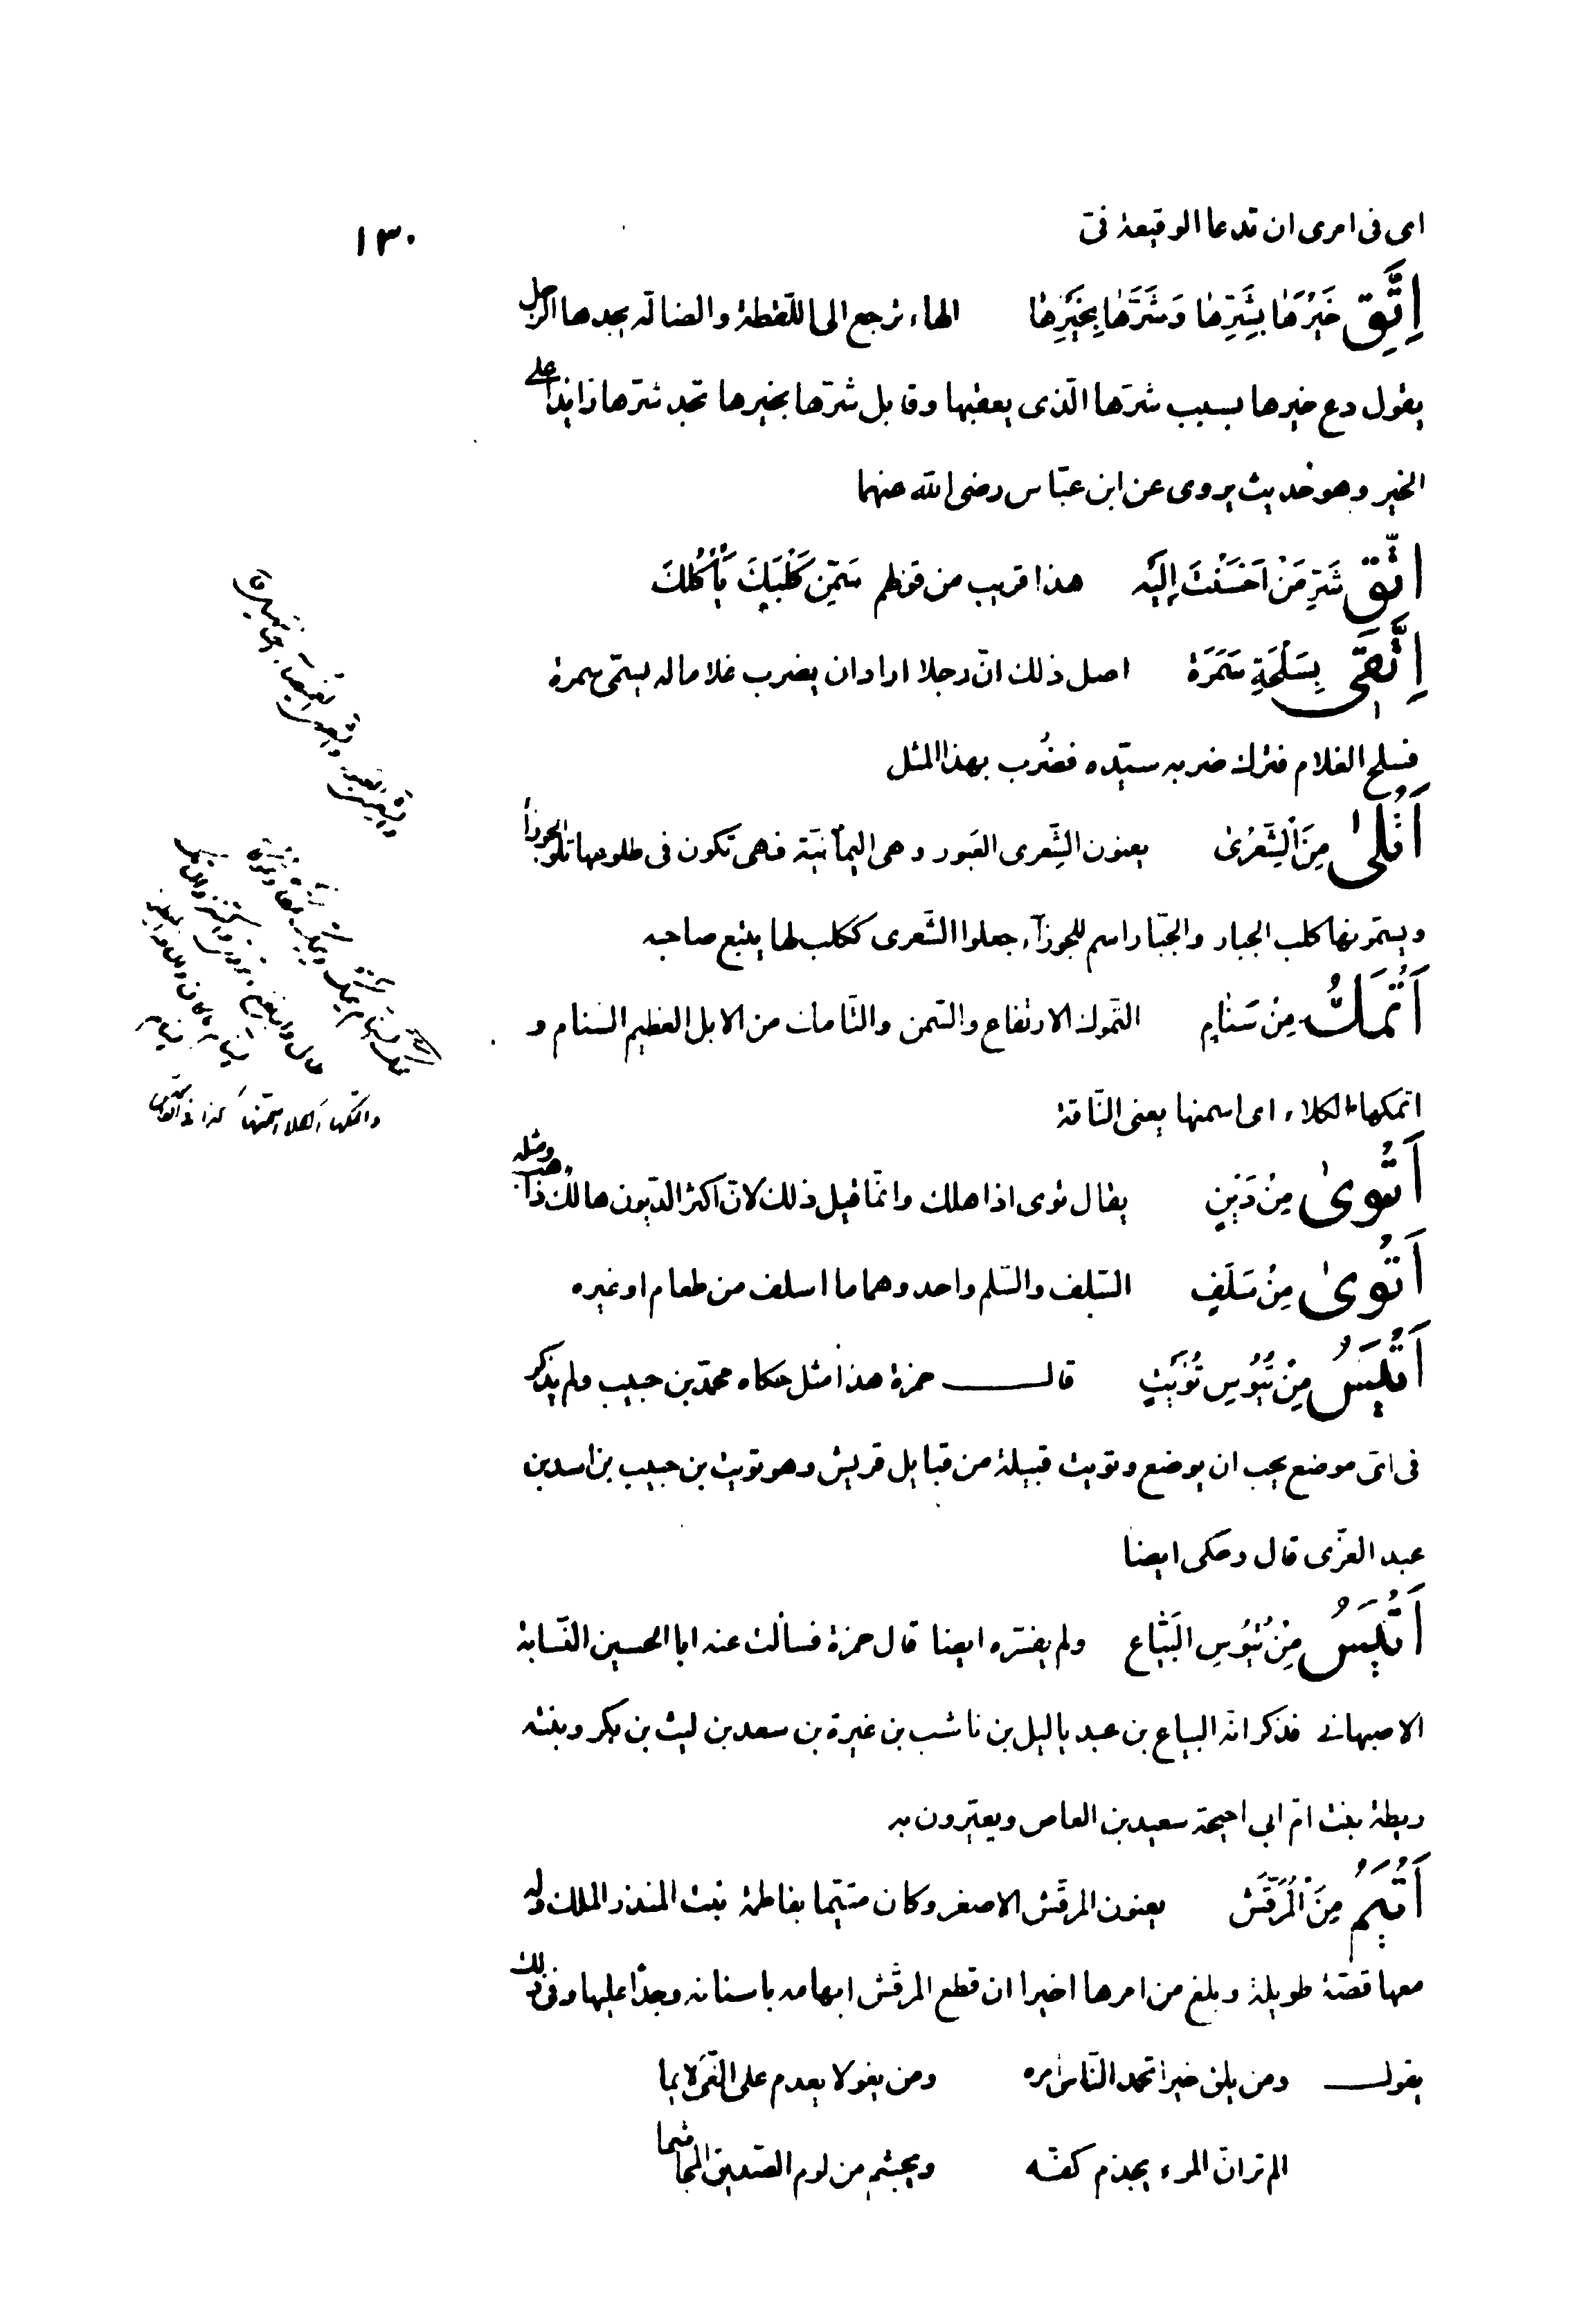 ١٣٠
اى فى امرى ان تدعا الوقيعة فىّ
اِتَّقِ خَيْرَهَا بِشَرِّهَا وَشَرَّهَا بِخَيْرِهَا الهاء ترجع الى اللّقطة والضالّة يجدها الرجل
يقول دع خيرها بسبب شرّها الّذى يعقبها وقابل شرّها بخيرها تجد شرّها زايدا على
الخير وهو حديث يروى عن ابن عبّاس رضى الله عنهما
اتَّقِ شَرَّ مَنْ اَحْسَنْتَ اِلَيْه هذا قريب من قولهم سَمِّنْ كَلْبَكَ يَأْكُلْكَ
اِتَّقَى بِسَلْحَةِ سَمُرَة اصل ذلك انّ رجلا اراد ان يضرب غلاما له يسمّى سمرة
فسلح الغلام فترك ضربه سيّده فضُرب بهذا المثل
اَتْلَى مِنَ الشِّعْرَى يعنون الشِّعرى العَبور وهى اليمانيّة فهى تكون فى طلوعها تلو الجوزآ
ويسمّونها كلب الجبار والجبّار اسم للجوزآء جعلوا الشّعرى ككلب لها يتبع صاحبه
اَتْمَكُ مِنْ سَنَامٍ التّموك الارتفاع والسّمن والتّامك من الابل العظيم السّنام و
اتمكها الكلاء اى اسمنها يعنى النّاقة
اَتْوَى مِنْ دَيْنٍ يقال توى اذا هلك وانّما قيل ذلك لانّ اكثر الدّيون هالك ذاهب ومثله
اَتْوَى مِنْ سَلَفٍ السّلف والسّلم واحد وهما ما اسلف من طعام او غيره
اَتْيَسُ مِنْ تُيُوسِ تُوَيْتٍ قال حمزة هذا مثل حكاه محمّد بن حبيب ولم يذكر
فى اىّ موضع يجب ان يوضع وتويت قبيلة من قبايل قريش وهو تويت بن حبيب بن اسد بن
عبد العزّى قال وحكى ايضا
اَتْيَسُ مِنْ تُيُوسِ الْبَيَّاع ولم يفسّره ايضا قال حمزة فسألت عنه ابا الحسين النّسابة
الاصبهانى فذكر انّه البياع بن عبد ياليل بن ناشب بن غيرة بن سعد بن ليث بن بكر وبنته
ريطة بنت امّ ابى احيحة سعيد بن العاص ويعيّرون به
اَتْيَمُ مِنَ الْمُرَقَّش يعنون المرقّش الاصغر وكان متيّما بفاطمة بنت المنذر الملك وله
معها قصّة طويلة وبلغ من امرها اخيرا ان قطع المرقّش ابهامه باسنانه وجدًا عليها وفى ذلك
يقول ومن يلق خيرا تحمد النّاس امره ومن يغو لا يعدم على الغىّ لايما
الم تر انّ المرء يجذم كفّه ويجشم من لوم الصّديق المجاشما
واتمكها الكلاء سمّنها كذا فى القاموس